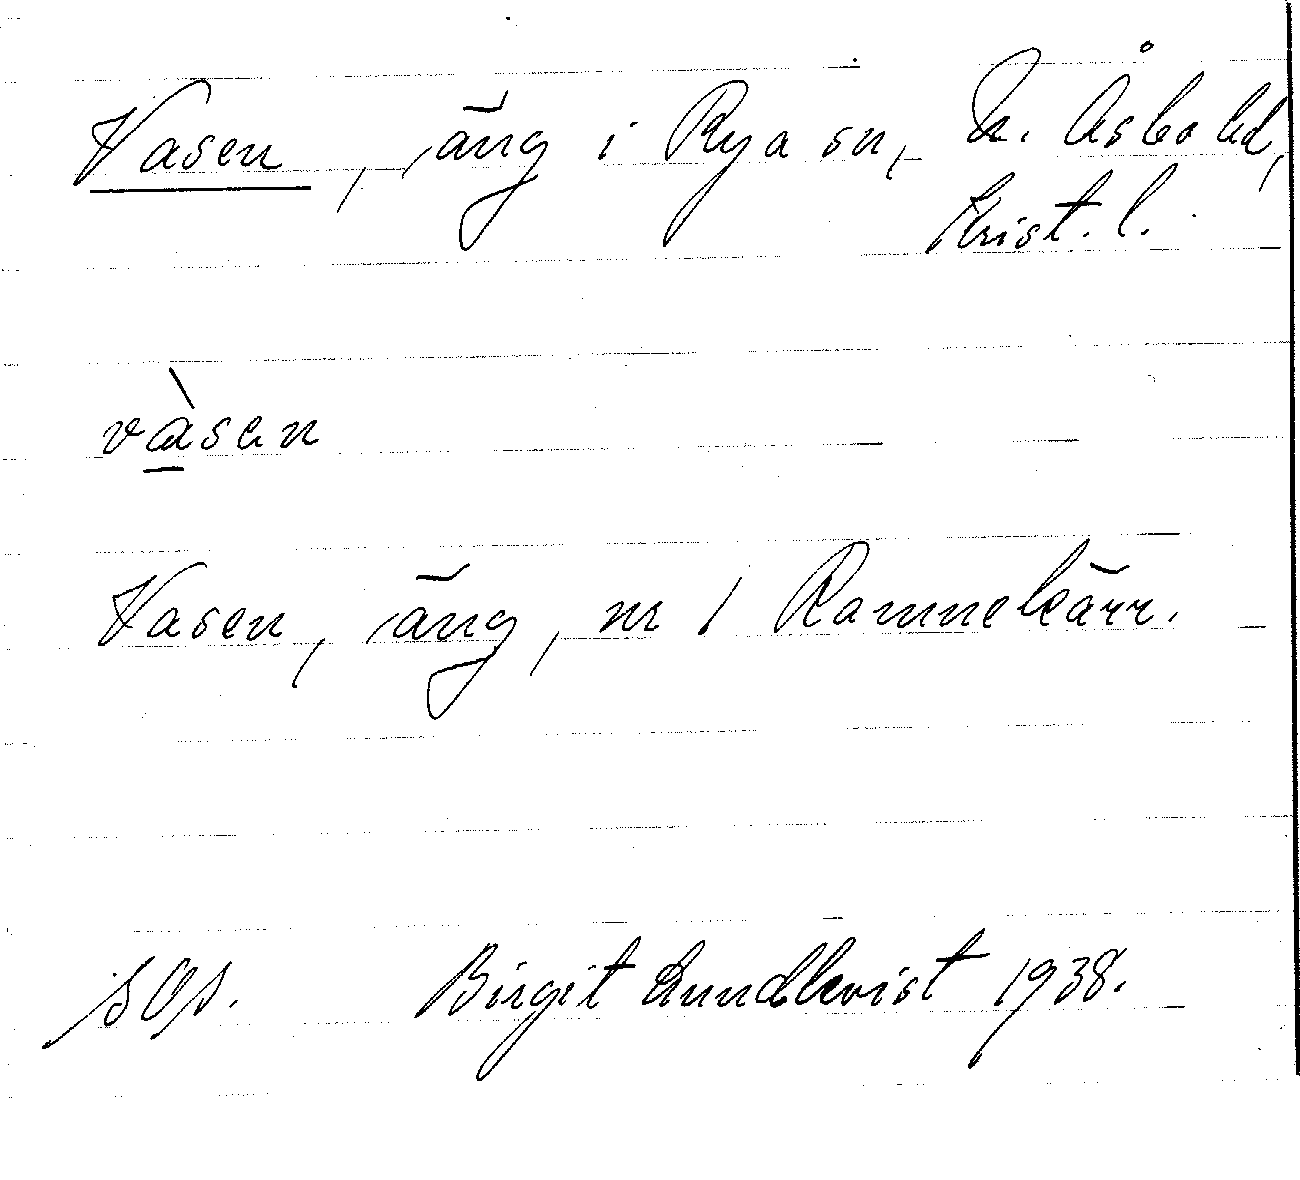 Vasen, äng i Rya sn, N. Åsbo hd,
Krist. l.
vàsen
Vasen, äng, nr 1 Ramnekärr.
SOA. Birgit Lundkvist 1938.